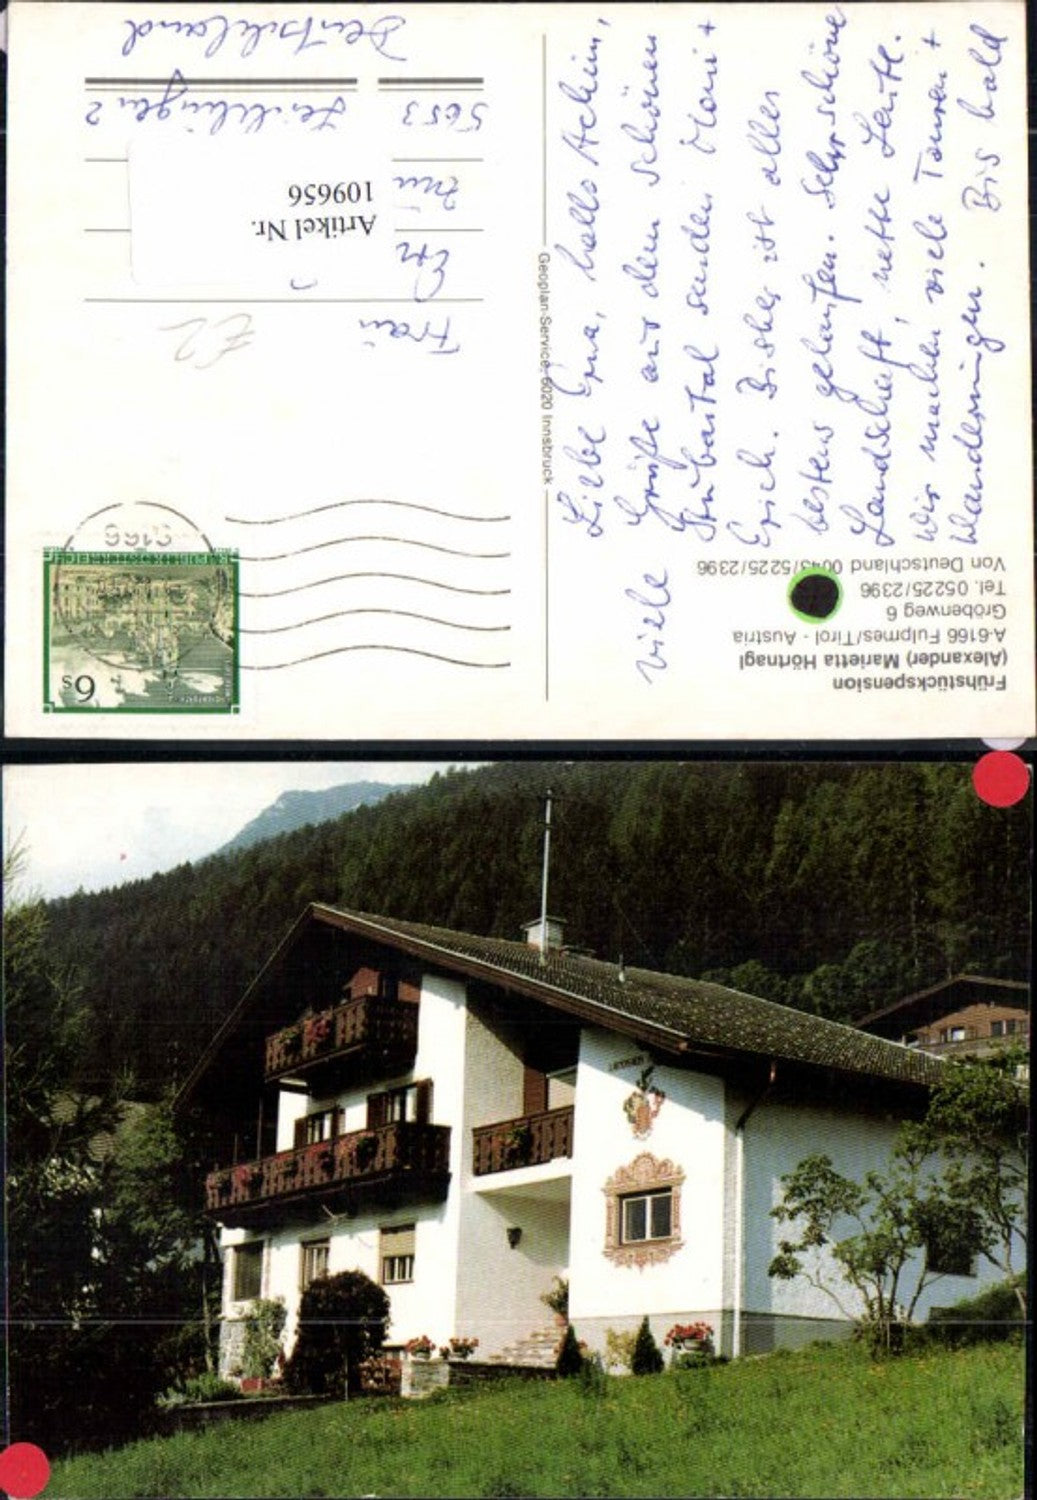 Frühstückspension
(Alexander) Marietta Hörtnagl
A-6166 Fulpmes/Tirol - Austria
Gröbenweg 6
Tel. 05225/2396
Von Deutschland 0043/5225/2396
Geoplan-Service, 6020 Innsbruck
Liebe Erna, hallo Achim,
viele Grüße aus dem schönen
Stubaital senden Moni +
Erich. Bisher ist alles
bestens gelaufen. Sehr schöne
Landschaft, nette Leute.
Wir machen viele Touren +
Wanderungen. Bis bald
REPUBLIK ÖSTERREICH
6s
6166
Frau
Artikel Nr.
109656
5653
2
Deutschland